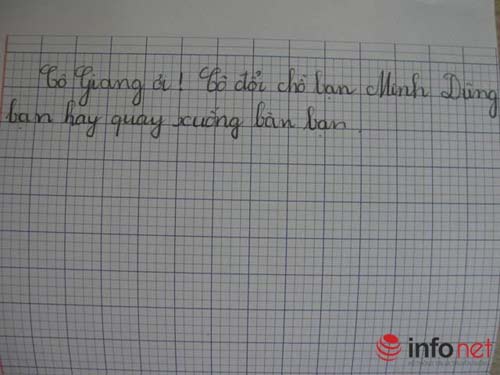 Cô Giang ơi! Cô đổi chỗ bạn Minh Dũng
bạn hay quay xuống bàn bạn.
infonet